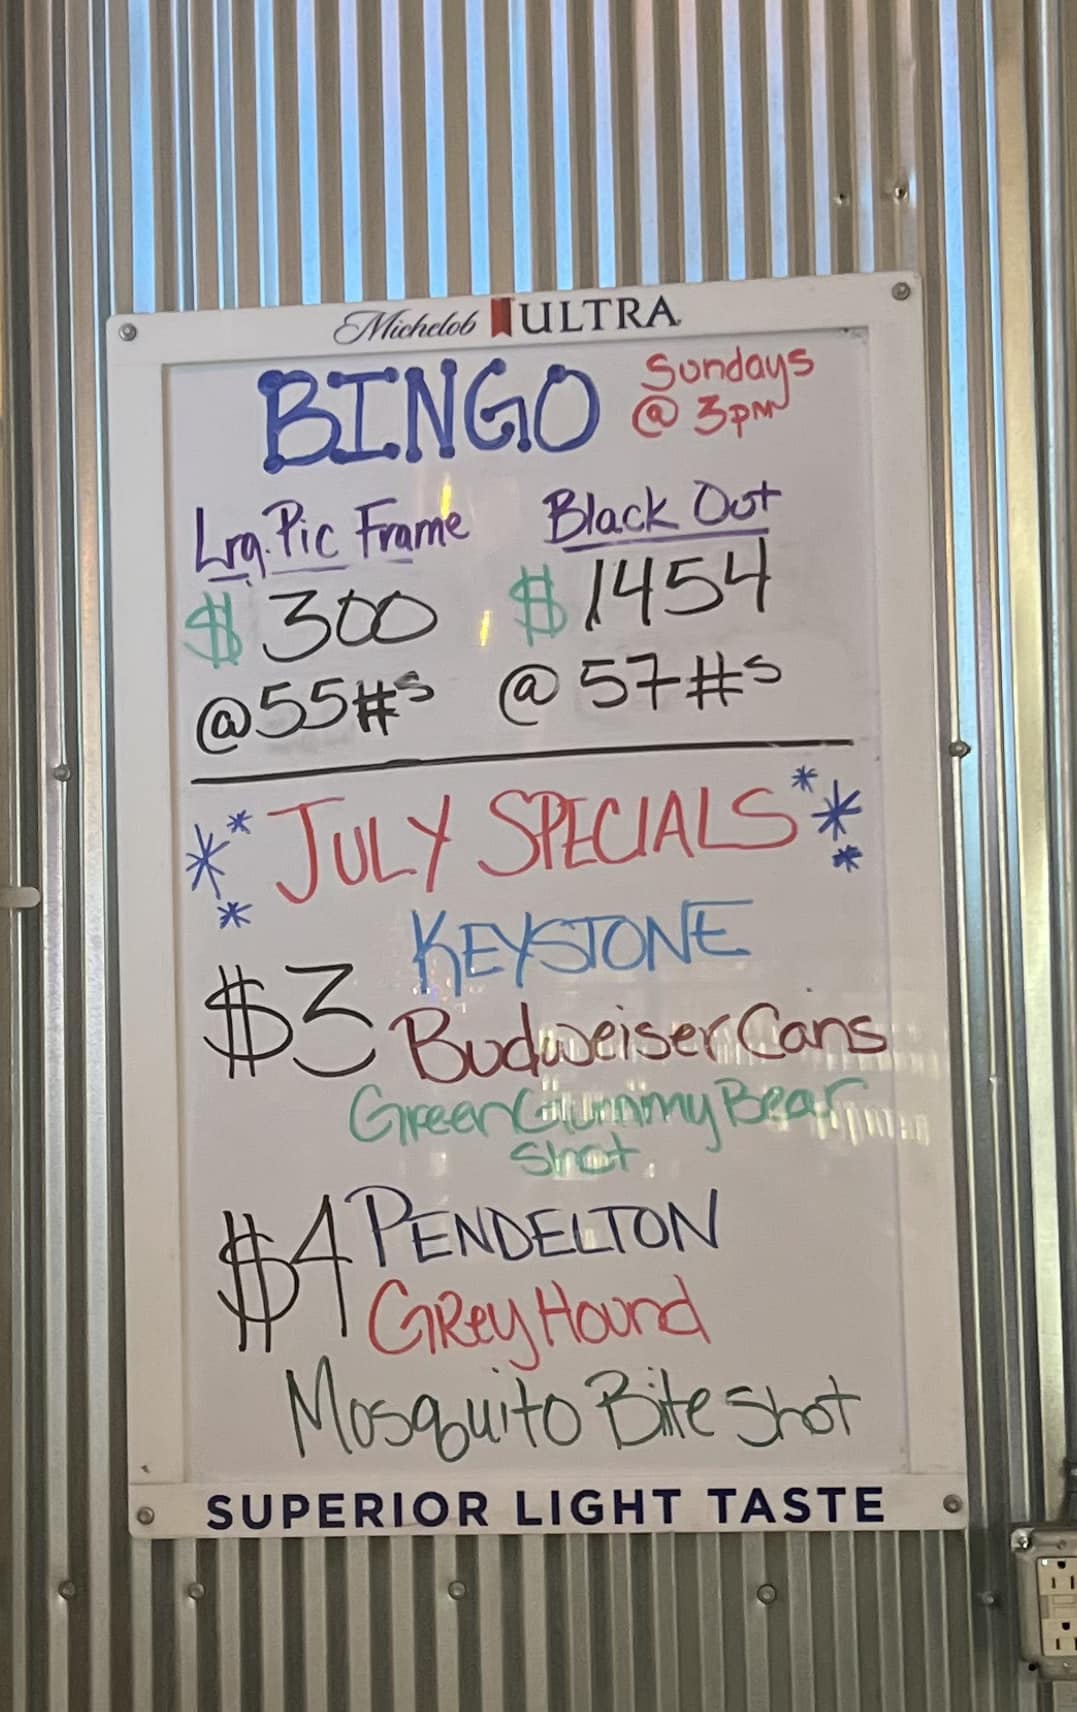 Michelob ULTRA
BINGO Sundays
@ 3pm
Lrg. Pic Frame Black Out
$300 $1454
@55#s @57#s
JULY SPECIALS
KEYSTONE
$3 Budweiser Cans
Green Gummy Bear
Shot
$4 PENDELTON
GReyHound
Mosquito Bite Shot
SUPERIOR LIGHT TASTE